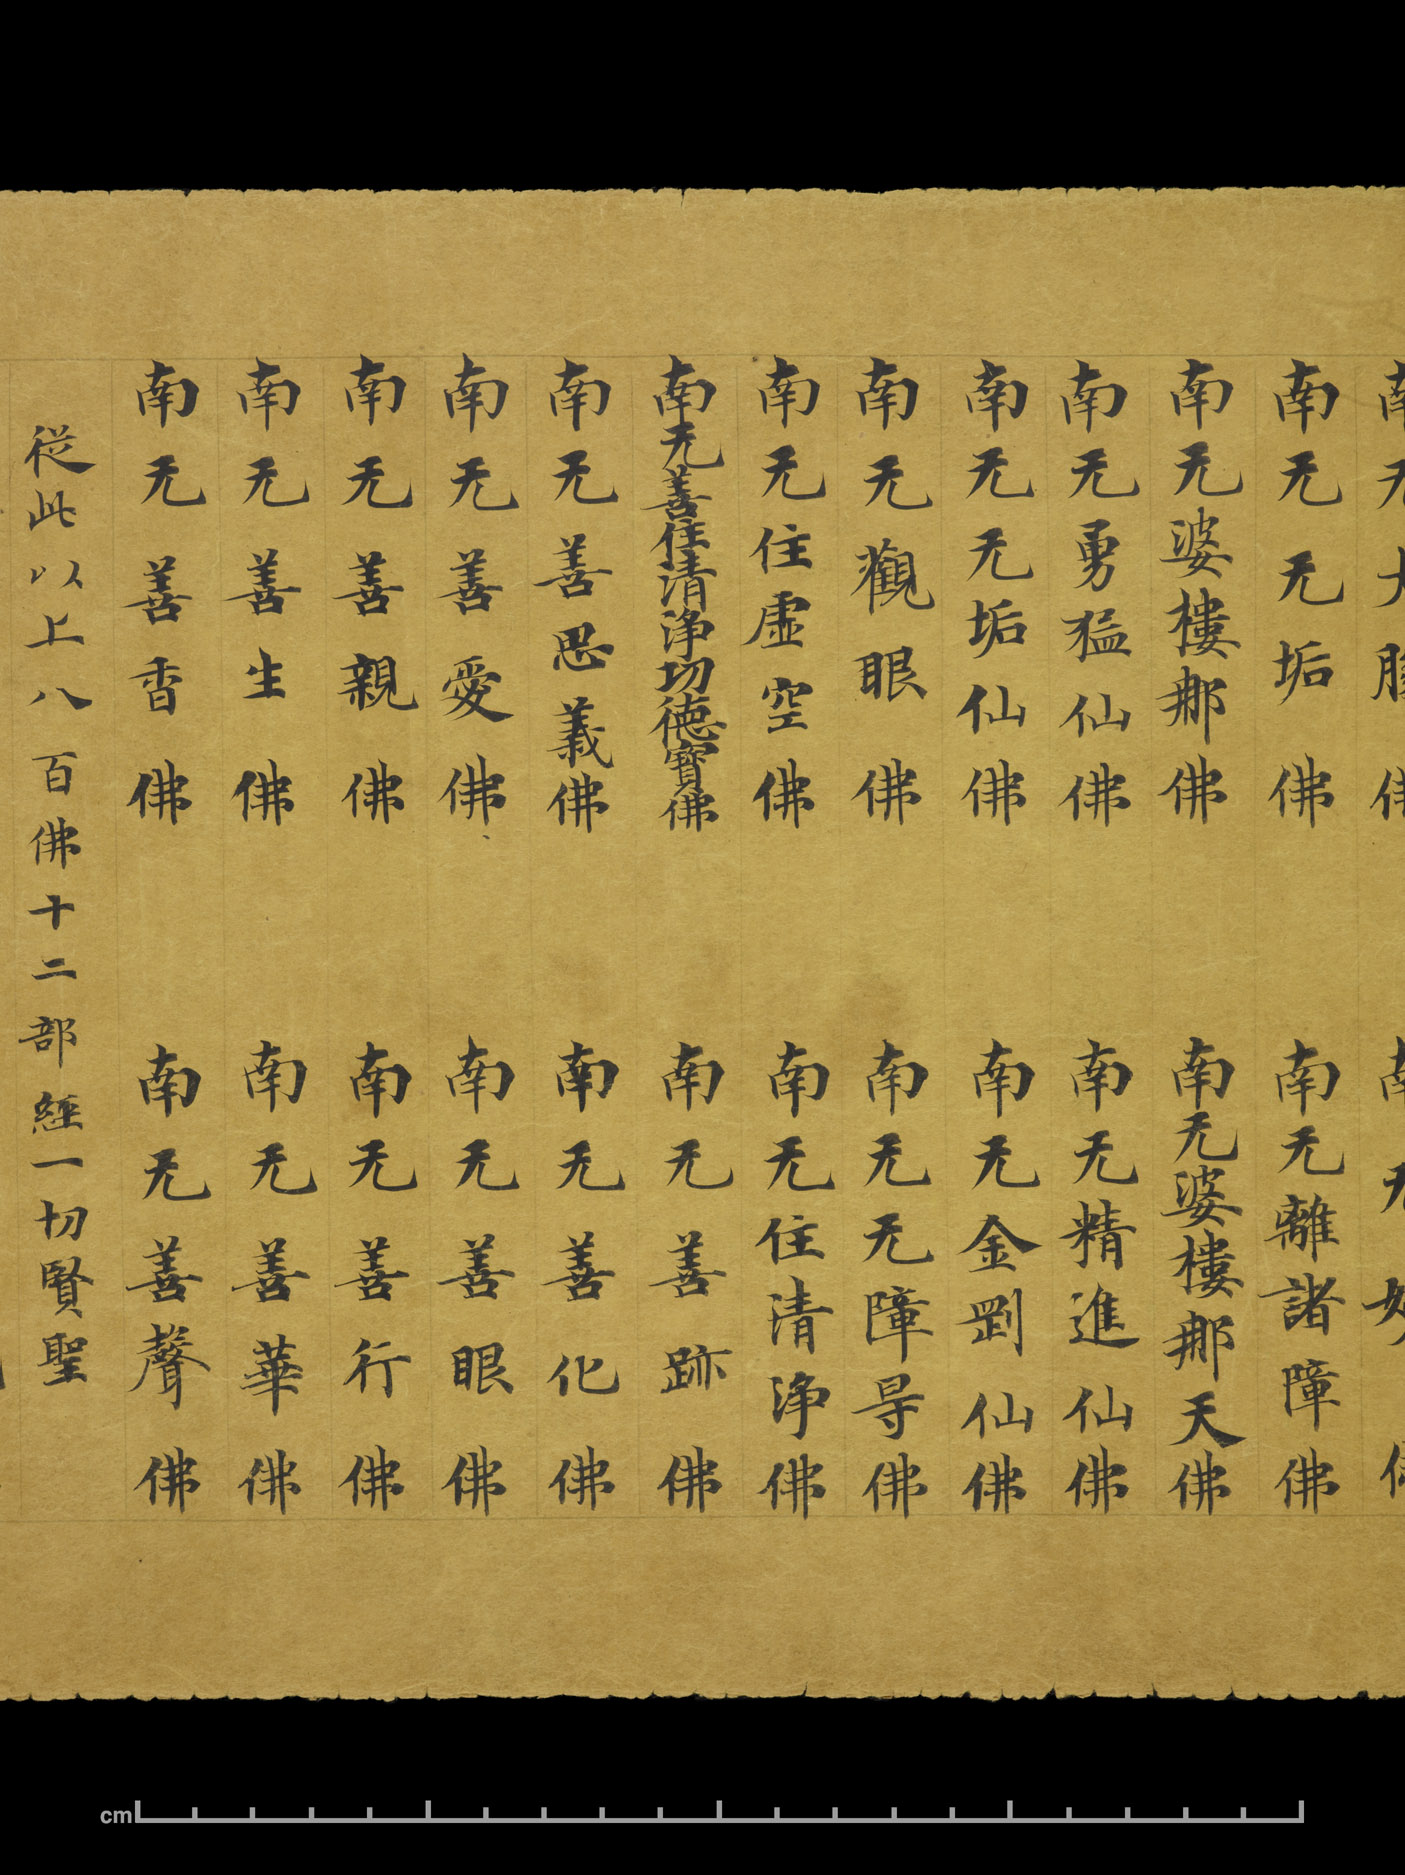 南无无垢佛 南无離諸障佛
南无婆樓那佛 南无婆樓那天佛
南无勇猛仙佛 南无精進仙佛
南无无垢仙佛 南无金剛仙佛
南无觀眼佛 南无无障㝵佛
南无住虛空佛 南无住清淨佛
南无善住清淨功德寶佛 南无善跡佛
南无善思義佛 南无善化佛
南无善愛佛 南无善眼佛
南无善親佛 南无善行佛
南无善生佛 南无善華佛
南无善香佛 南无善聲佛
従此以上八百佛十二部經一切賢聖
cm